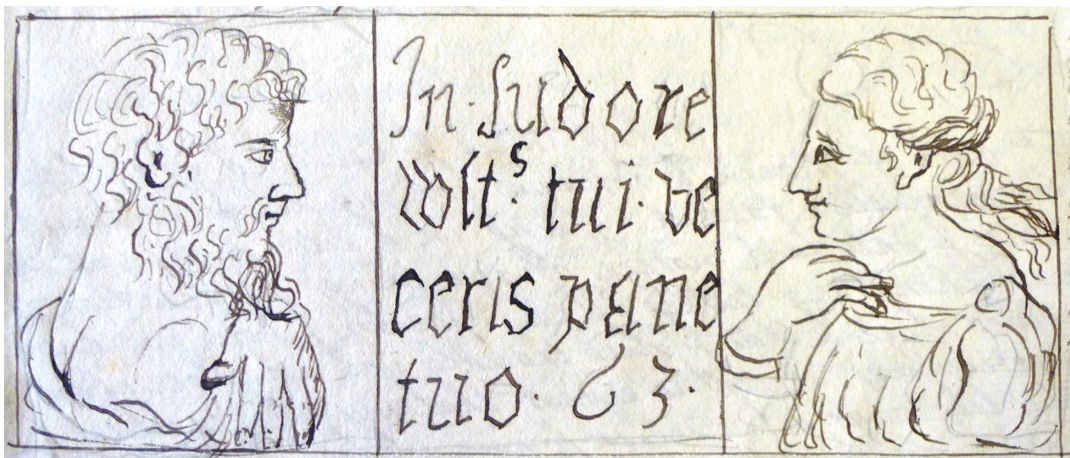 In · sudore
wlt.s tui · ve
ceris pane
tuo · G 3 ·